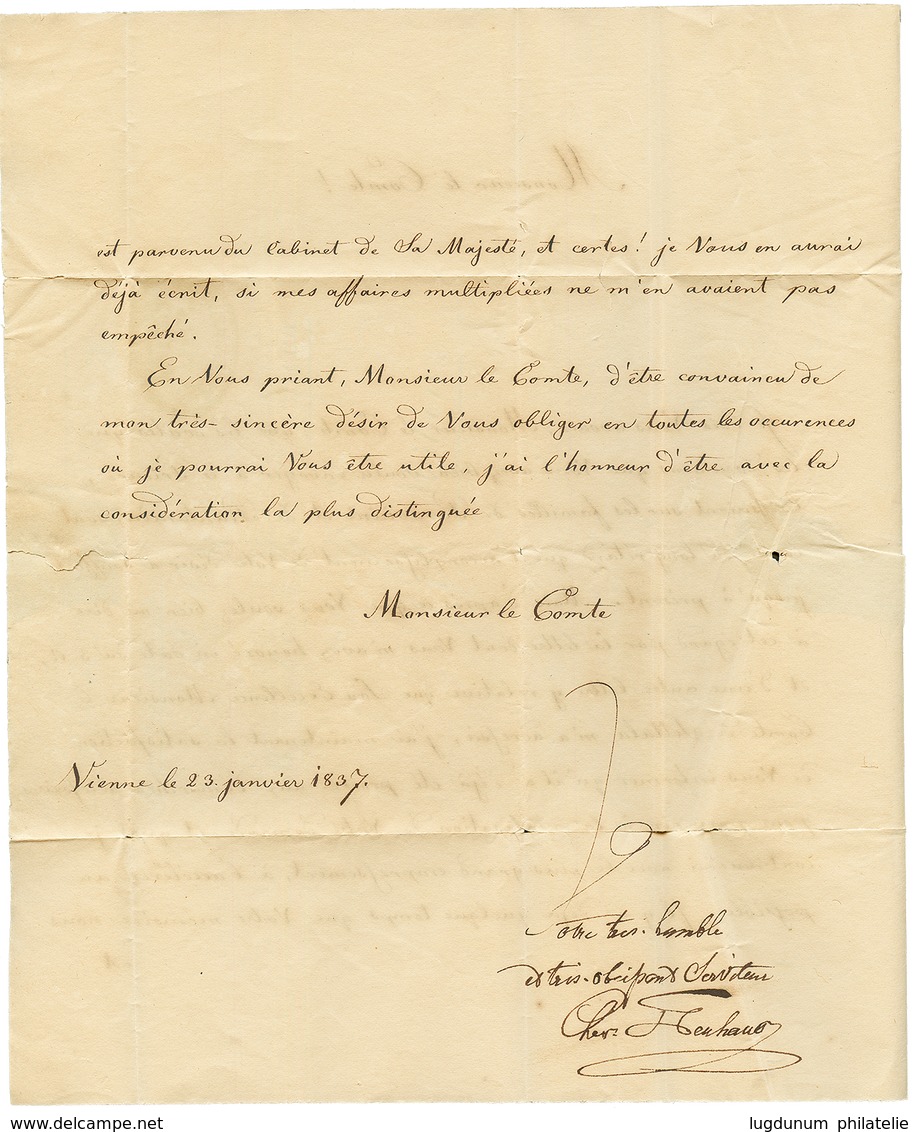 est parvenu du Cabinet de Sa Majesté, et certes! je Vous en aurai
déjà écrit, si mes affaires multipliées ne m'en avaient pas
empêché.
En Vous priant, Monsieur le Comte, d'être convaincu de
mon très-sincère désir de Vous obliger en toutes les occurences
où je pourrai Vous être utile, j'ai l'honneur d'être avec la
considération la plus distinguée
Monsieur le Comte
Vienne le 23. janvier 1837.
Votre très-humble
et très-obeissant Serviteur
Chev. Neuhaus
www.delcampe.net
lugdunum philatelie